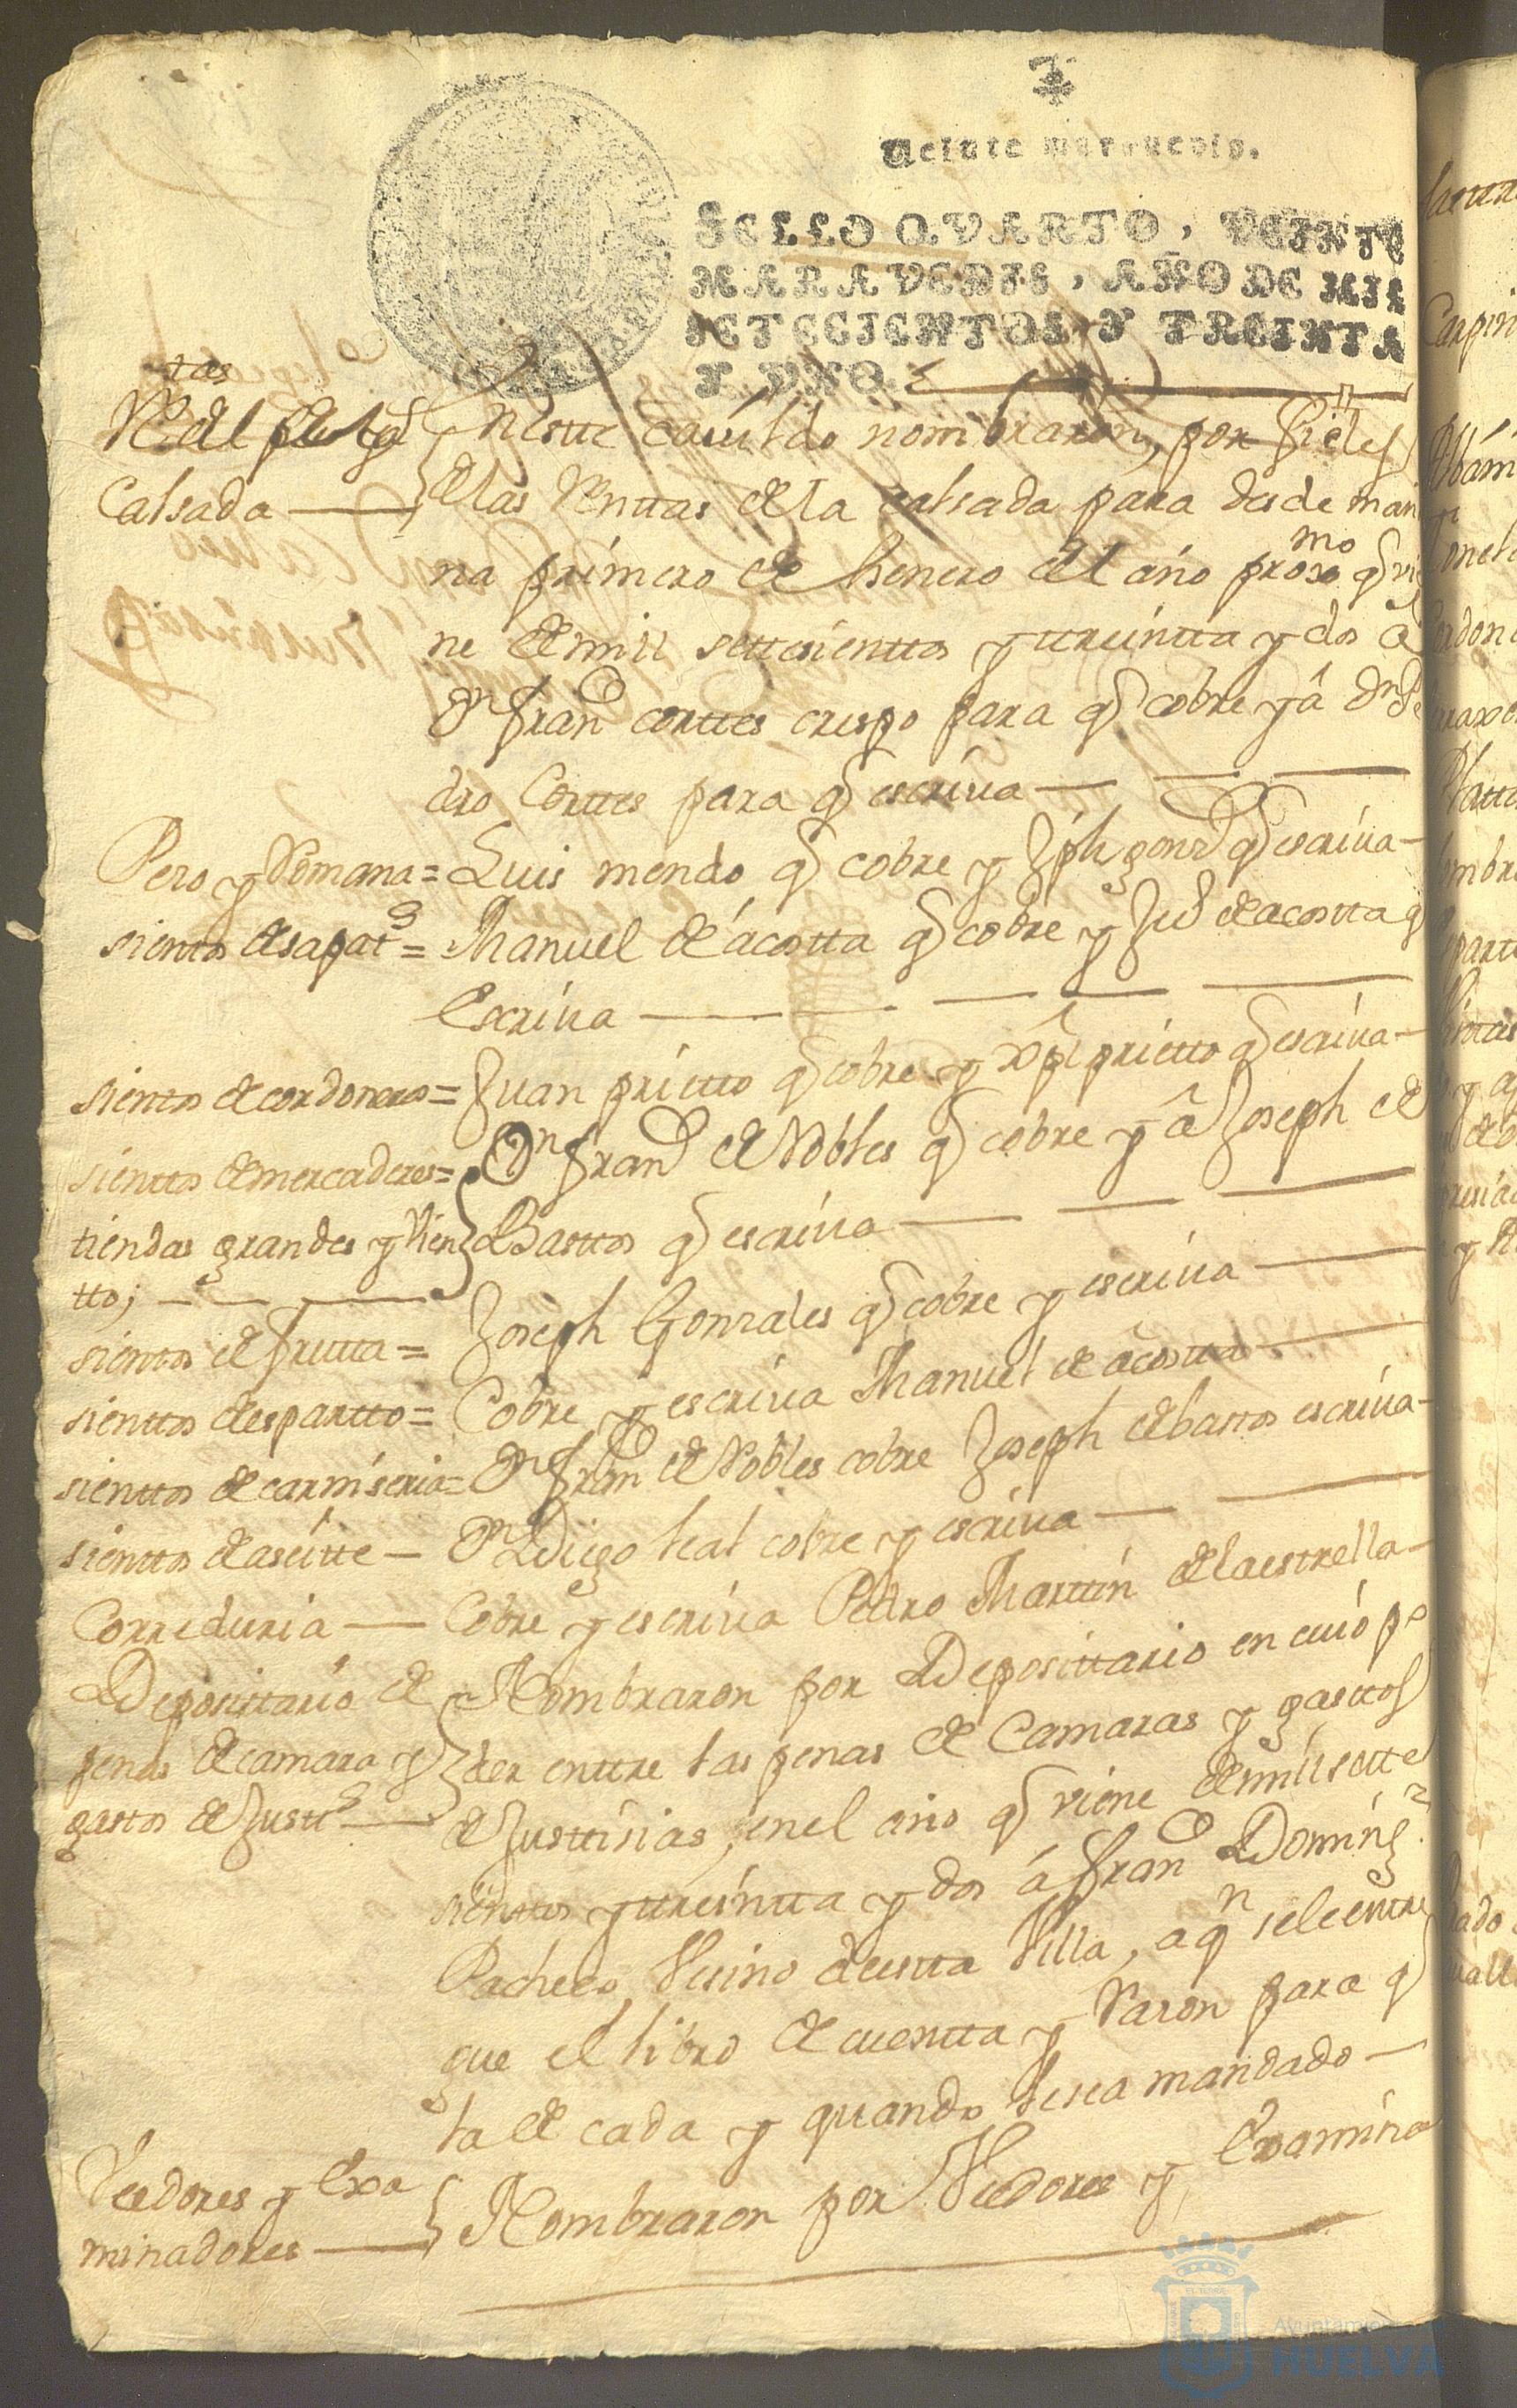 Veinte maravedis.
SELLO QVARTO, VEINTE
MARAVEDIS, AÑO DE MIL
SETECIENTOS Y TREINTA
Y VNO.
Calsada
Nestte Cauildo nombraron, por fieles
de las Renttas de la calsada para desde mañ
na primero de henero del año proxmo q vie
ne de mill settesienttos y ttreintta y dos a
Dn Franco corttes crespo para q cobre y â Dn Pe
dro Corttes para q escriua
Peso y Romana = Luis mendo q cobre y Jph gonz q escriua
sientos de sapats = Manuel de ácostta q cobre y Juo de acostta q
Escriua
sientos de cordoneros = Juan priетto q cobre y xpl priетto q escriua
sienttos de mercaderes = Dn Franco de Robles q cobre y â Joseph de
tiendas grandes y Vien
Basttos q escriua
tto;
sientos de frutta = Joseph Gonzales q cobre y escriua
sienttos de espartto = Cobre y escriua Manuel de acostta
sienttos de carniseria = Dn Franco de Robles cobre Joseph de bastos escriua
sienttos de aseitte – Dn Diego leal cobre y escriua
Correduria — Cobre y escriua Pedro Marttin de la estrella
Deposittario de
penas de camara y
gastos de Justts
Nombraron por Deposittario en cuio po
der enttre las penas de Camaras y gasttos
de Justtisias, en el año q viene de mill sette
sienttos y ttreintta y dos á Franco Doming
Pacheco Vesino de estta Villa, a qn se le enttre
gue el libro de cuentta y Rason para q
la de cada y quando le sea mandado
Veedores y Exa
minadores
Nombraron por Veedores y Examina
Ayuntamiento
HUELVA